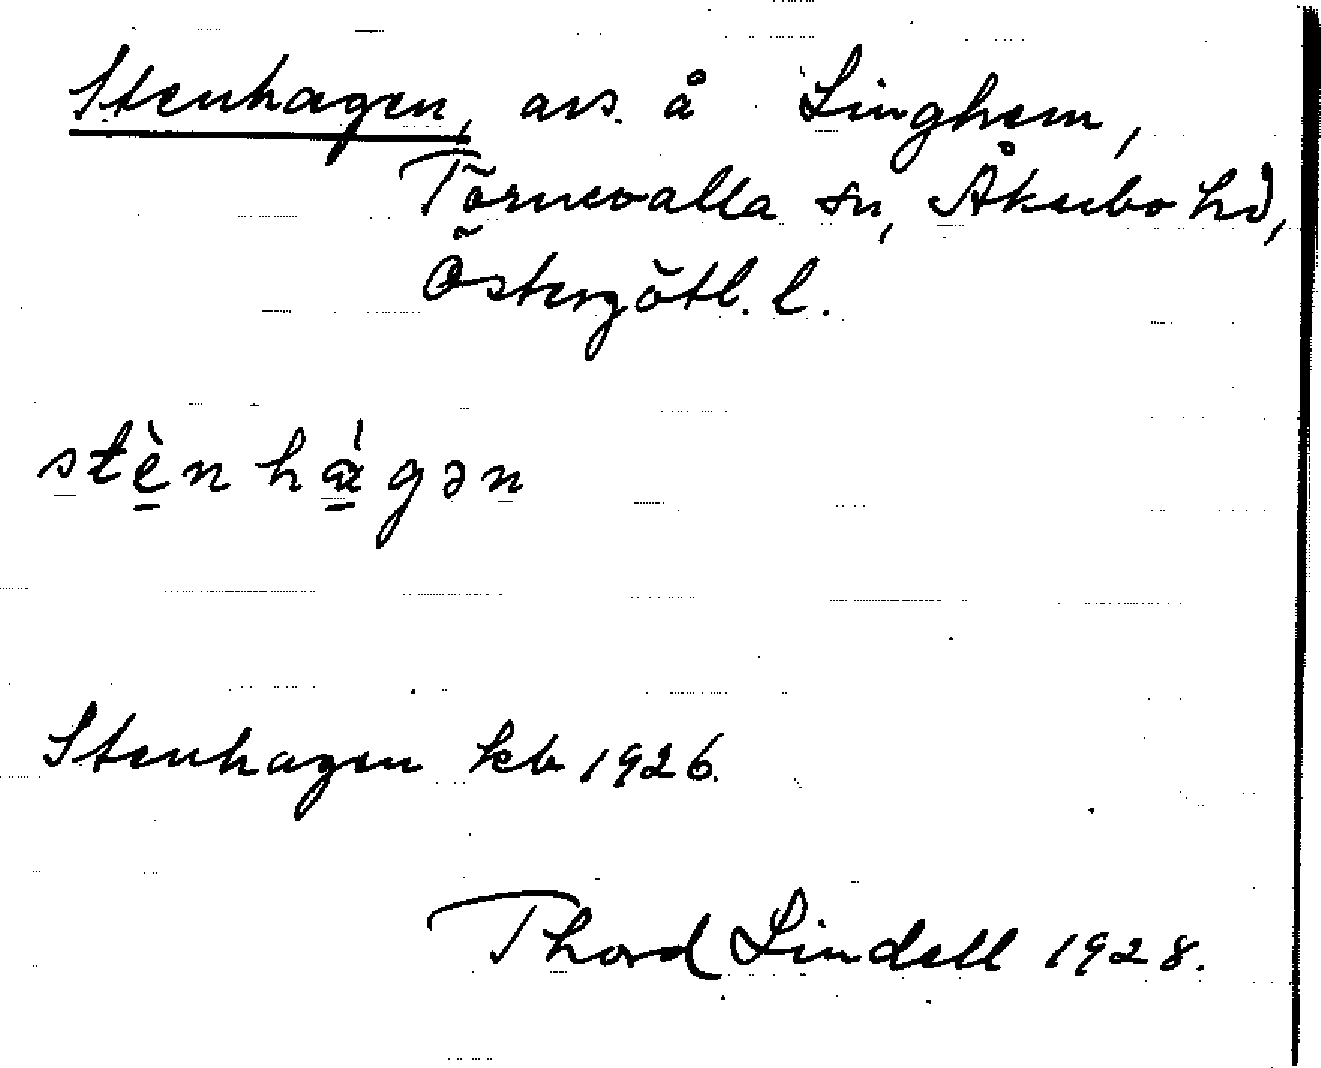 Stenhagen, avs. å Linghem,
Törnevalla sn, Åkerbo hd,
Östergötl. l.
stènhágən
Stenhagen kb 1926.
Thord Lindell 1928.